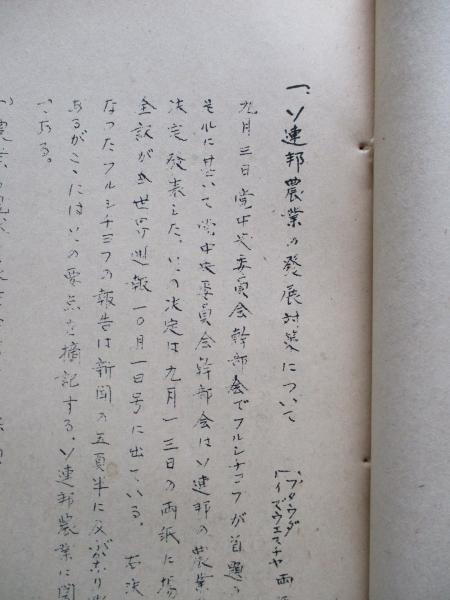 一、ソ連邦農業の發展対策について
プラウダ
イズウエスチヤ 両
九月三日党中央委員会幹部会でフルシチョフが首題の
それに基いて党中央委員会幹部会はソ連邦の農業
決定発表した。この決定は九月一三日の両紙に掲
全訳が世界週報一〇月一日号に出ている。 右決
なったフルシチョフの報告は新聞の五頁半に及ぶ
あるがここにはその要点を摘記する。ソ連邦農業に関
である。